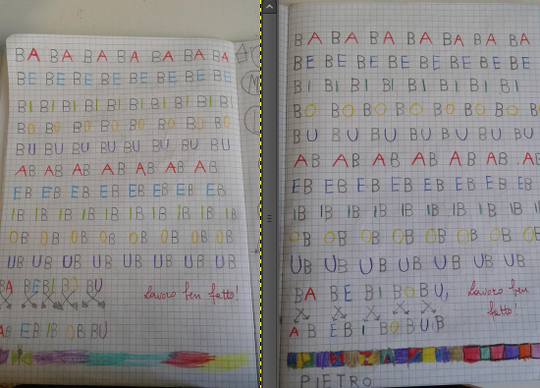 BA BA BA BA BA BA BA
BE BE BE BE BE BE BE BE
BI BI BI BI BI BI BI BI BI
BO BO BO BO BO BO BO BO
BU BU BU BU BU BU BU BU
AB AB AB AB AB AB AB
EB EB EB EB EB EB EB EB
IB IB IB IB IB IB IB IB IB
OB OB OB OB OB OB OB
UB UB UB UB UB UB UB UB
BA BE BI BO BU
Lavoro ben fatto!
AB EB IB OB BU
BA BA BA BA BA BA BA
BE BE BE BE BE BE BE BE
BI BI BI BI BI BI BI BI
BO BO BO BO BO BO BO
BU BU BU BU BU BU BU
AB AB AB AB AB AB AB
EB EB EB EB EB EB EB
IB IB IB IB IB IB IB IB
OB OB OB OB OB OB OB
UB UB UB UB UB UB UB
BA BE BI BO BU, Lavoro ben
fatto!
AB EB IB OB UB
PIETRO